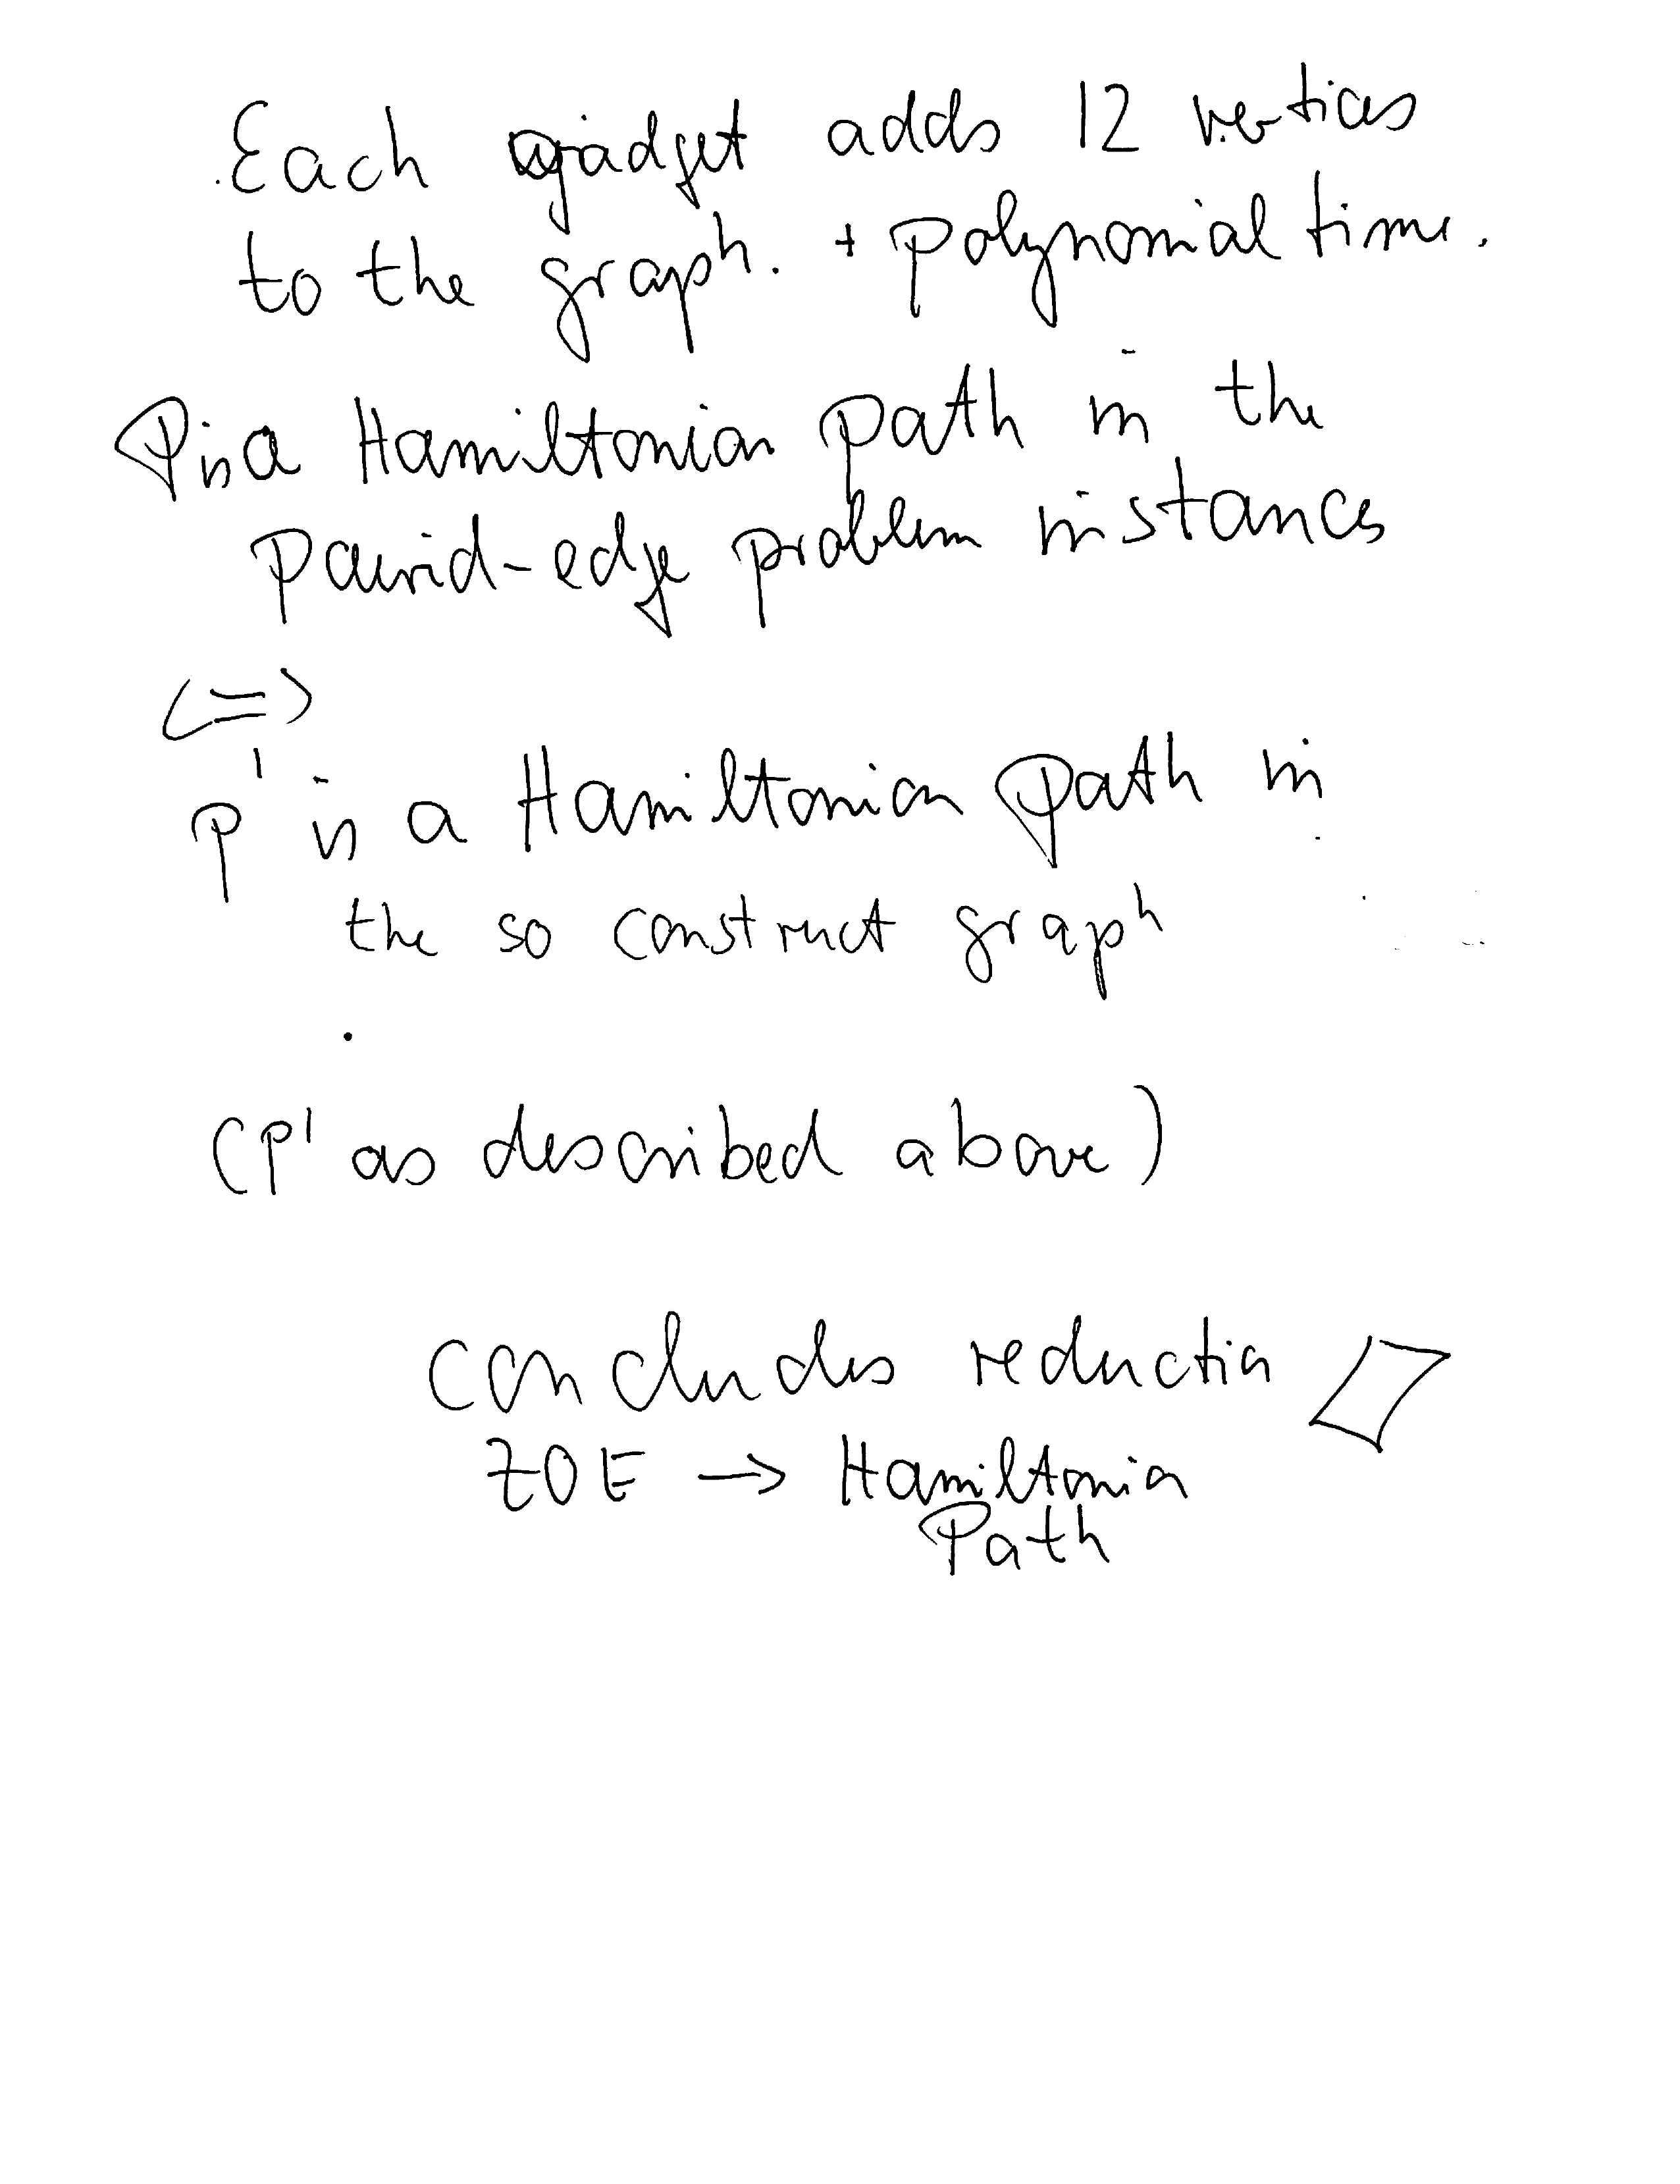 Each gadget adds 12 vertices
to the graph. + polynomial time.
P is a Hamiltonian path in the
paired-edge problem instance
<=>
P' is a Hamiltonian path in
the so construct graph
(P' as described above)
concludes reduction
ZOE → Hamiltonian
Path